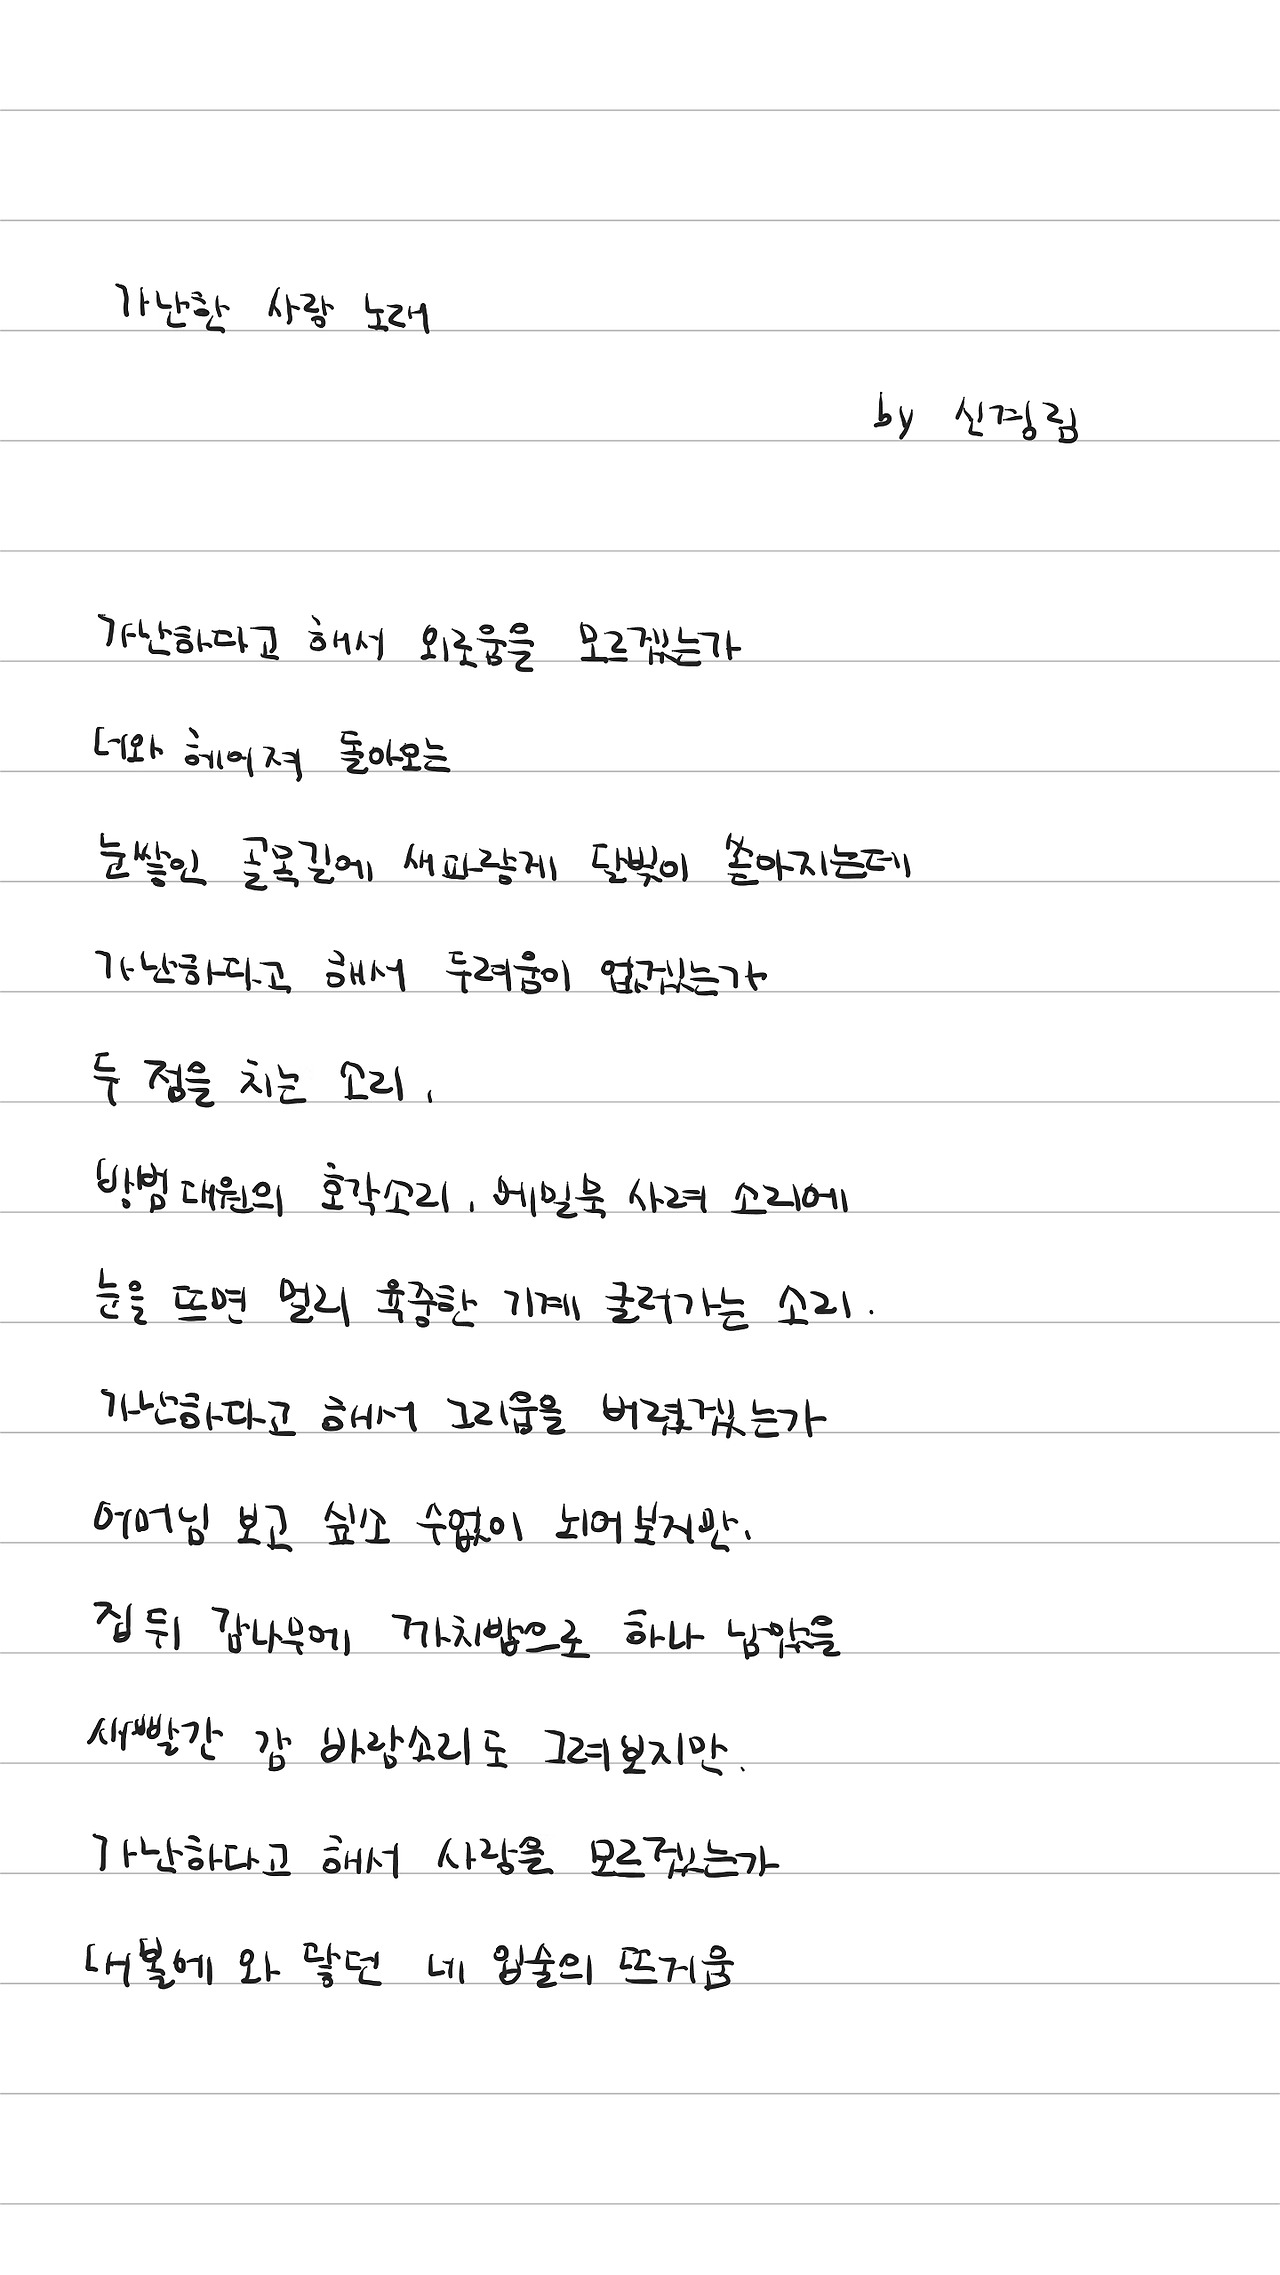 가난한 사랑 노래
by 신경림
가난하다고 해서 외로움을 모르겠는가
너와 헤어져 돌아오는
눈쌓인 골목길에 새파랗게 달빛이 쏟아지는데
가난하다고 해서 두려움이 없겠는가
두 점을 치는 소리,
방범대원의 호각소리, 메밀묵 사려 소리에
눈을 뜨면 멀리 육중한 기계 굴러가는 소리.
가난하다고 해서 그리움을 버렸겠는가
어머님 보고 싶소 수없이 뇌어보지만,
집 뒤 감나무에 까치밥으로 하나 남았을
새빨간 감 바람소리도 그려보지만.
가난하다고 해서 사랑을 모르겠는가
내 볼에 와 닿던 네 입술의 뜨거움